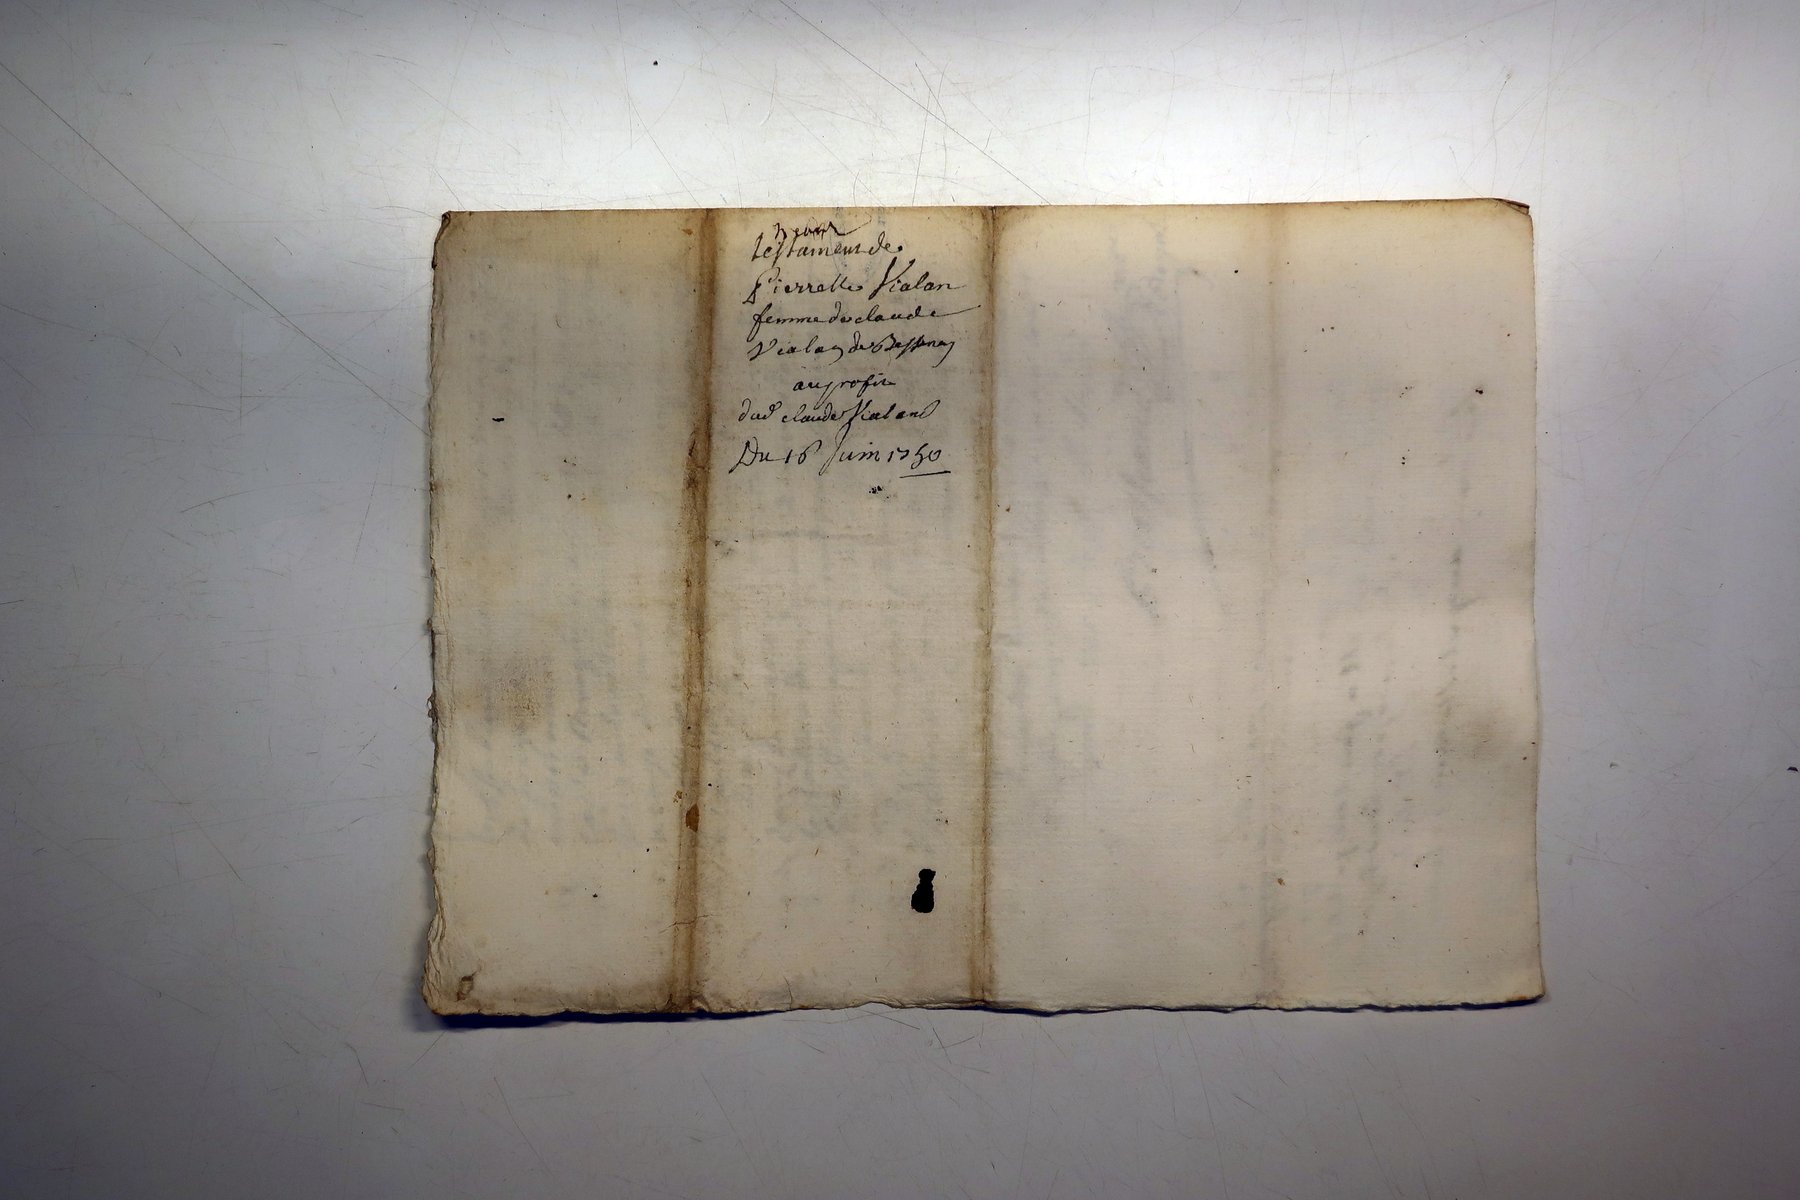 testament de
Pierrette Vialan
femme de claude
Vialan de Bessenay
au profit
dud claude Vialand
Du 16 Juin 1750